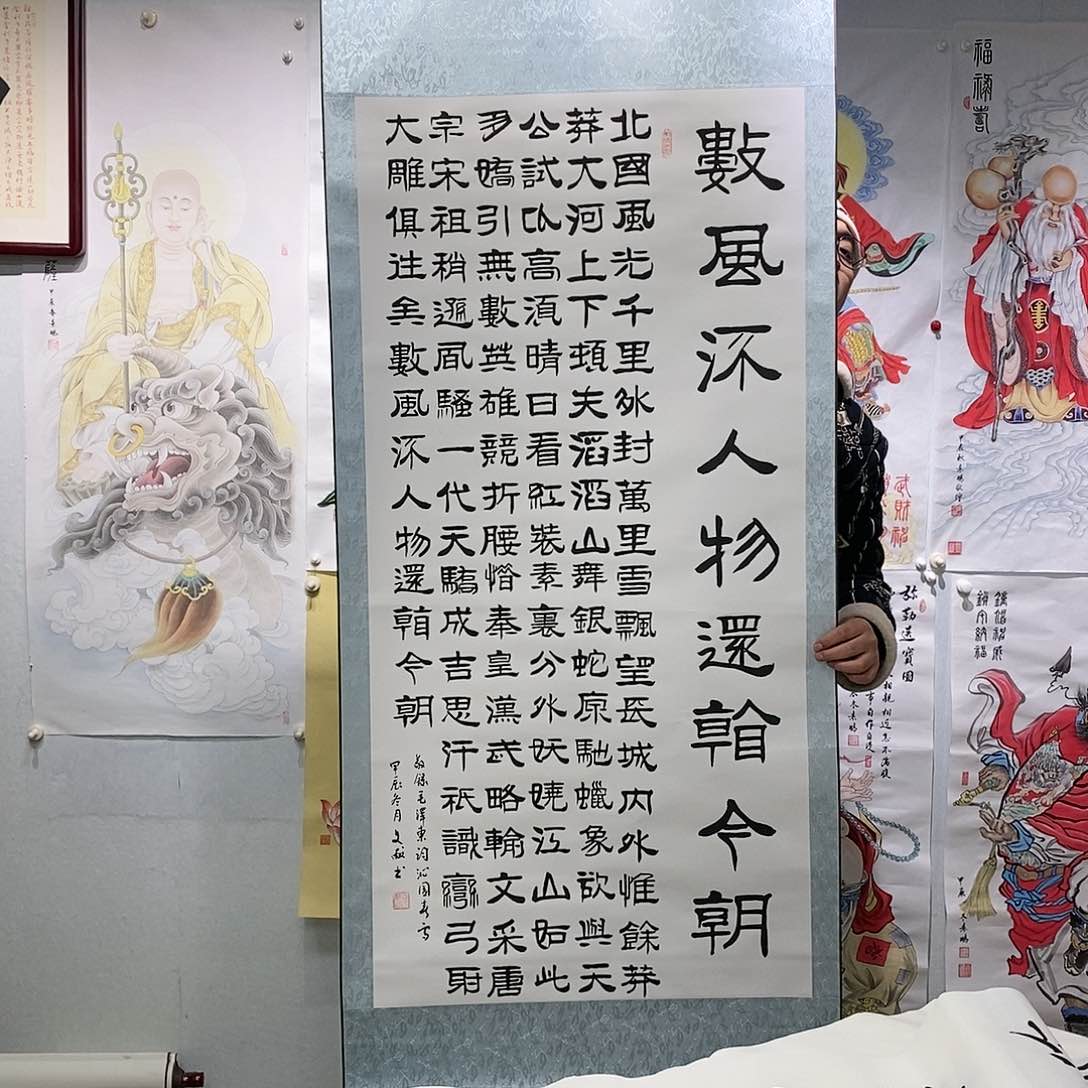 數風流人物還看今朝
北國風光千里冰封萬里雪飄望長城內外惟餘莽
莽大河上下頓失滔滔山舞銀蛇原馳蠟象欲與天
公試比高須晴日看紅裝素裹分外妖嬈江山如此
多嬌引無數英雄競折腰惜秦皇漢武略輸文采唐
宗宋祖稍遜風騷一代天驕成吉思汗祇識彎弓射
大雕俱往矣數風流人物還看今朝
敬錄毛澤東詞沁園春雪
甲辰冬月文敏書
福祿壽
武財神
弥勒送寶圖
鎮宅納福